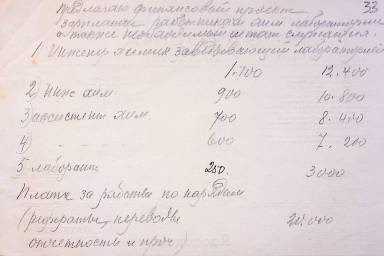 Предлагаю финансовый проект 33
зарплаты работникам хим лаборатории
а также штат служащих.
1 Инженер химик заведывающий лабораторией
1.700 12.400
2) Инж хим 900 10.800
3) ассистент хим 700 8.400
4) " " 600 7.200
5 лаборант 250. 3000
Плата за работы по нарядам
(рефераты, переводы 20.000
отчетность и проч)